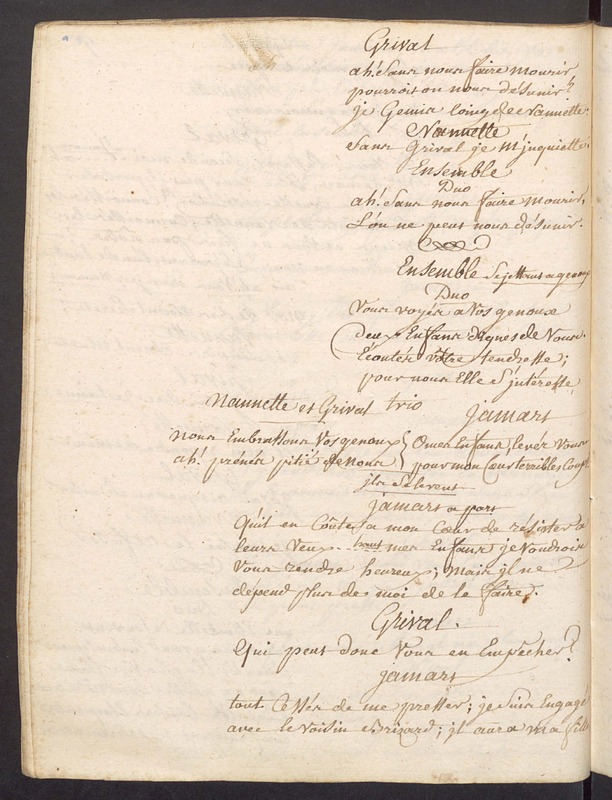 Grival
ah! Sans nous faire mourir
pourroit on nous désunir?
je Gemis loing de Nannette.
Nannette
Sans Grival je M'inquiette.
Ensemble
Duo
ah! Sans nous faire mourir,
L'on ne peut nous désunir.
Ensemble Se jettant a genoux
Duo
Vous voyés a Vos genoux
deux Enfans dignes de Vous.
Ecoutés Votre tendresse;
pour nous Elle S'intéresse
Nannette et Grival trio jamars
nous Embrassons Vos genoux } O mes Enfans, levés Vous
ah! prénés pitié de Nous } pour mon Cœur terribles Coups
jls Se levent
jamars a part
Qu'il en Coûte a mon Cœur de résister a
leurs Veux haut mes Enfans je Voudrois
Vous rendre heureux; Mais jl ne
dépend plus de moi de le faire.
Grival.
Qui peut donc Vous en Empêcher?
jamars
tout Cessés de me presser; je suis Engagé
avec le Voisin Brizard; jl aura ma fille